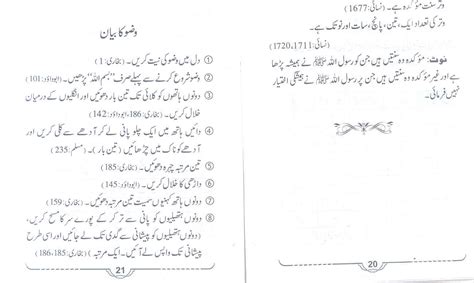 وتر سنت مؤکدہ ہے۔ (نسائی: 1677)
وتر کی تعداد ایک، تین، پانچ، سات اور نو تک ہے۔
(نسائی: 1720,1711)
نوٹ: مؤکدہ وہ سنتیں ہیں جن کو رسول اللہ ﷺ نے ہمیشہ پڑھا
ہے اور غیر مؤکدہ وہ سنتیں ہیں جن پر رسول اللہ ﷺ نے ہمیشگی اختیار
نہیں فرمائی۔
20
وضو کا بیان
① دل میں وضو کی نیت کریں۔ (بخاری: 1)
② وضو شروع کرنے سے پہلے صرف "بسم اللہ" پڑھیں۔ (ابوداؤد: 101)
③ دونوں ہاتھوں کو کلائی تک تین بار دھوئیں اور انگلیوں کے درمیان
خلال کریں۔ (بخاری: 186، ابوداؤد: 142)
④ دائیں ہاتھ میں ایک چلو پانی لے کر آدھے سے کلی کریں اور
آدھے کو ناک میں چڑھائیں (تین بار)۔ (مسلم: 235)
⑤ تین مرتبہ چہرہ دھوئیں۔ (بخاری: 185)
⑥ داڑھی کا خلال کریں۔ (ابوداؤد: 145)
⑦ دونوں ہاتھ کہنیوں سمیت تین مرتبہ دھوئیں۔ (بخاری: 159)
⑧ دونوں ہتھیلیوں کو پانی سے تر کر کے پورے سر کا مسح کریں،
(دونوں ہتھیلیوں کو پیشانی سے گدی تک لے جائیں اور اسی طرح
پیشانی تک واپس لے آئیں۔ ایک مرتبہ) (بخاری: 186،185)
21